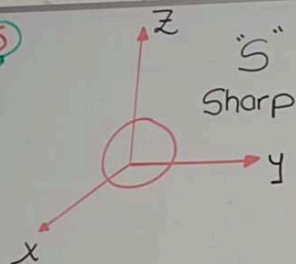 S
Z
"S"
Sharp
y
x